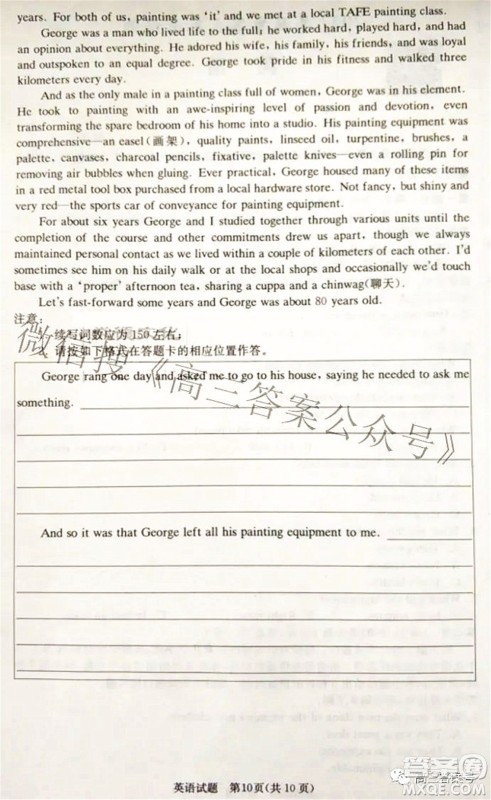 years. For both of us, painting was 'it' and we met at a local TAFE painting class.
George was a man who lived life to the full; he worked hard, played hard, and had
an opinion about everything. He adored his wife, his family, his friends, and was loyal
and outspoken to an equal degree. George took pride in his fitness and walked three
kilometers every day.
And as the only male in a painting class full of women, George was in his element.
He took to painting with an awe-inspiring level of passion and devotion, even
transforming the spare bedroom of his home into a studio. His painting equipment was
comprehensive—an easel(画架), quality paints, linseed oil, turpentine, brushes, a
palette, canvases, charcoal pencils, fixative, palette knives—even a rolling pin for
removing air bubbles when gluing. Ever practical, George housed many of these items
in a red metal tool box purchased from a local hardware store. Not fancy, but shiny and
very red—the sports car of conveyance for painting equipment.
For about six years George and I studied together through various units until the
completion of the course and other commitments drew us apart, though we always
maintained personal contact as we lived within a couple of kilometers of each other. I'd
sometimes see him on his daily walk or at the local shops and occasionally we'd touch
base with a 'proper' afternoon tea, sharing a cuppa and a chinwag(聊天).
Let's fast-forward some years and George was about 80 years old.
注意:
续写词数应为150左右;
请按如下格式在答题卡的相应位置作答。
George rang one day and asked me to go to his house, saying he needed to ask me
something.
And so it was that George left all his painting equipment to me.
微信搜《高三答案公众号》
英语试题 第10页(共10页)
高三答案号
答案圈
MXQE.COM